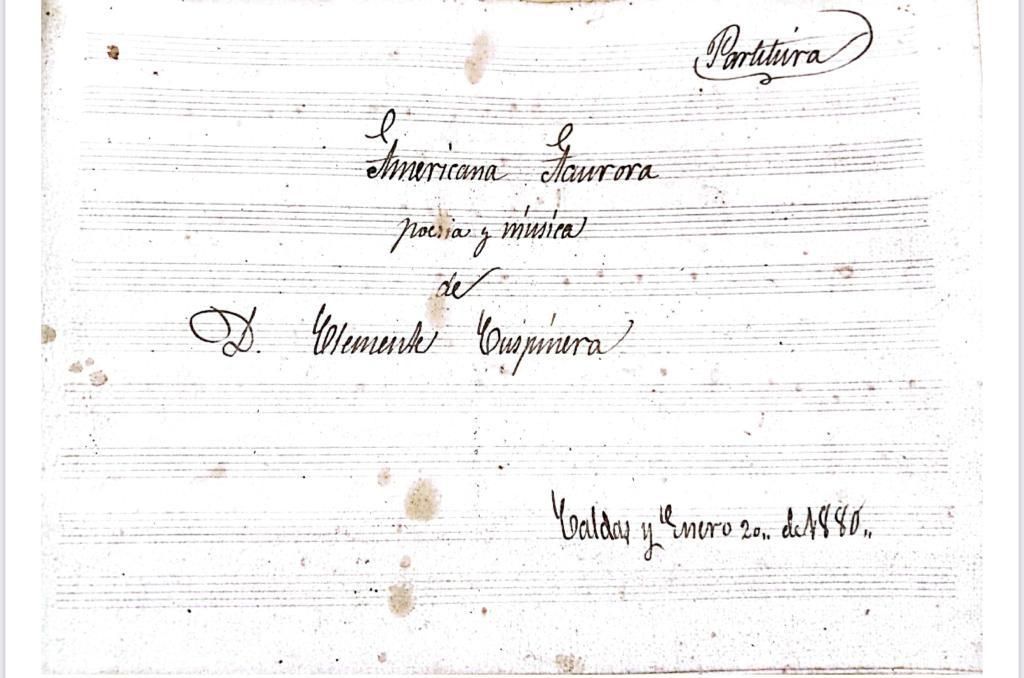 Partitura
Americana Aaurora
poesia y música
de
D. Clemente Cuspinera
Caldas y Enero 20,, de 1880,,